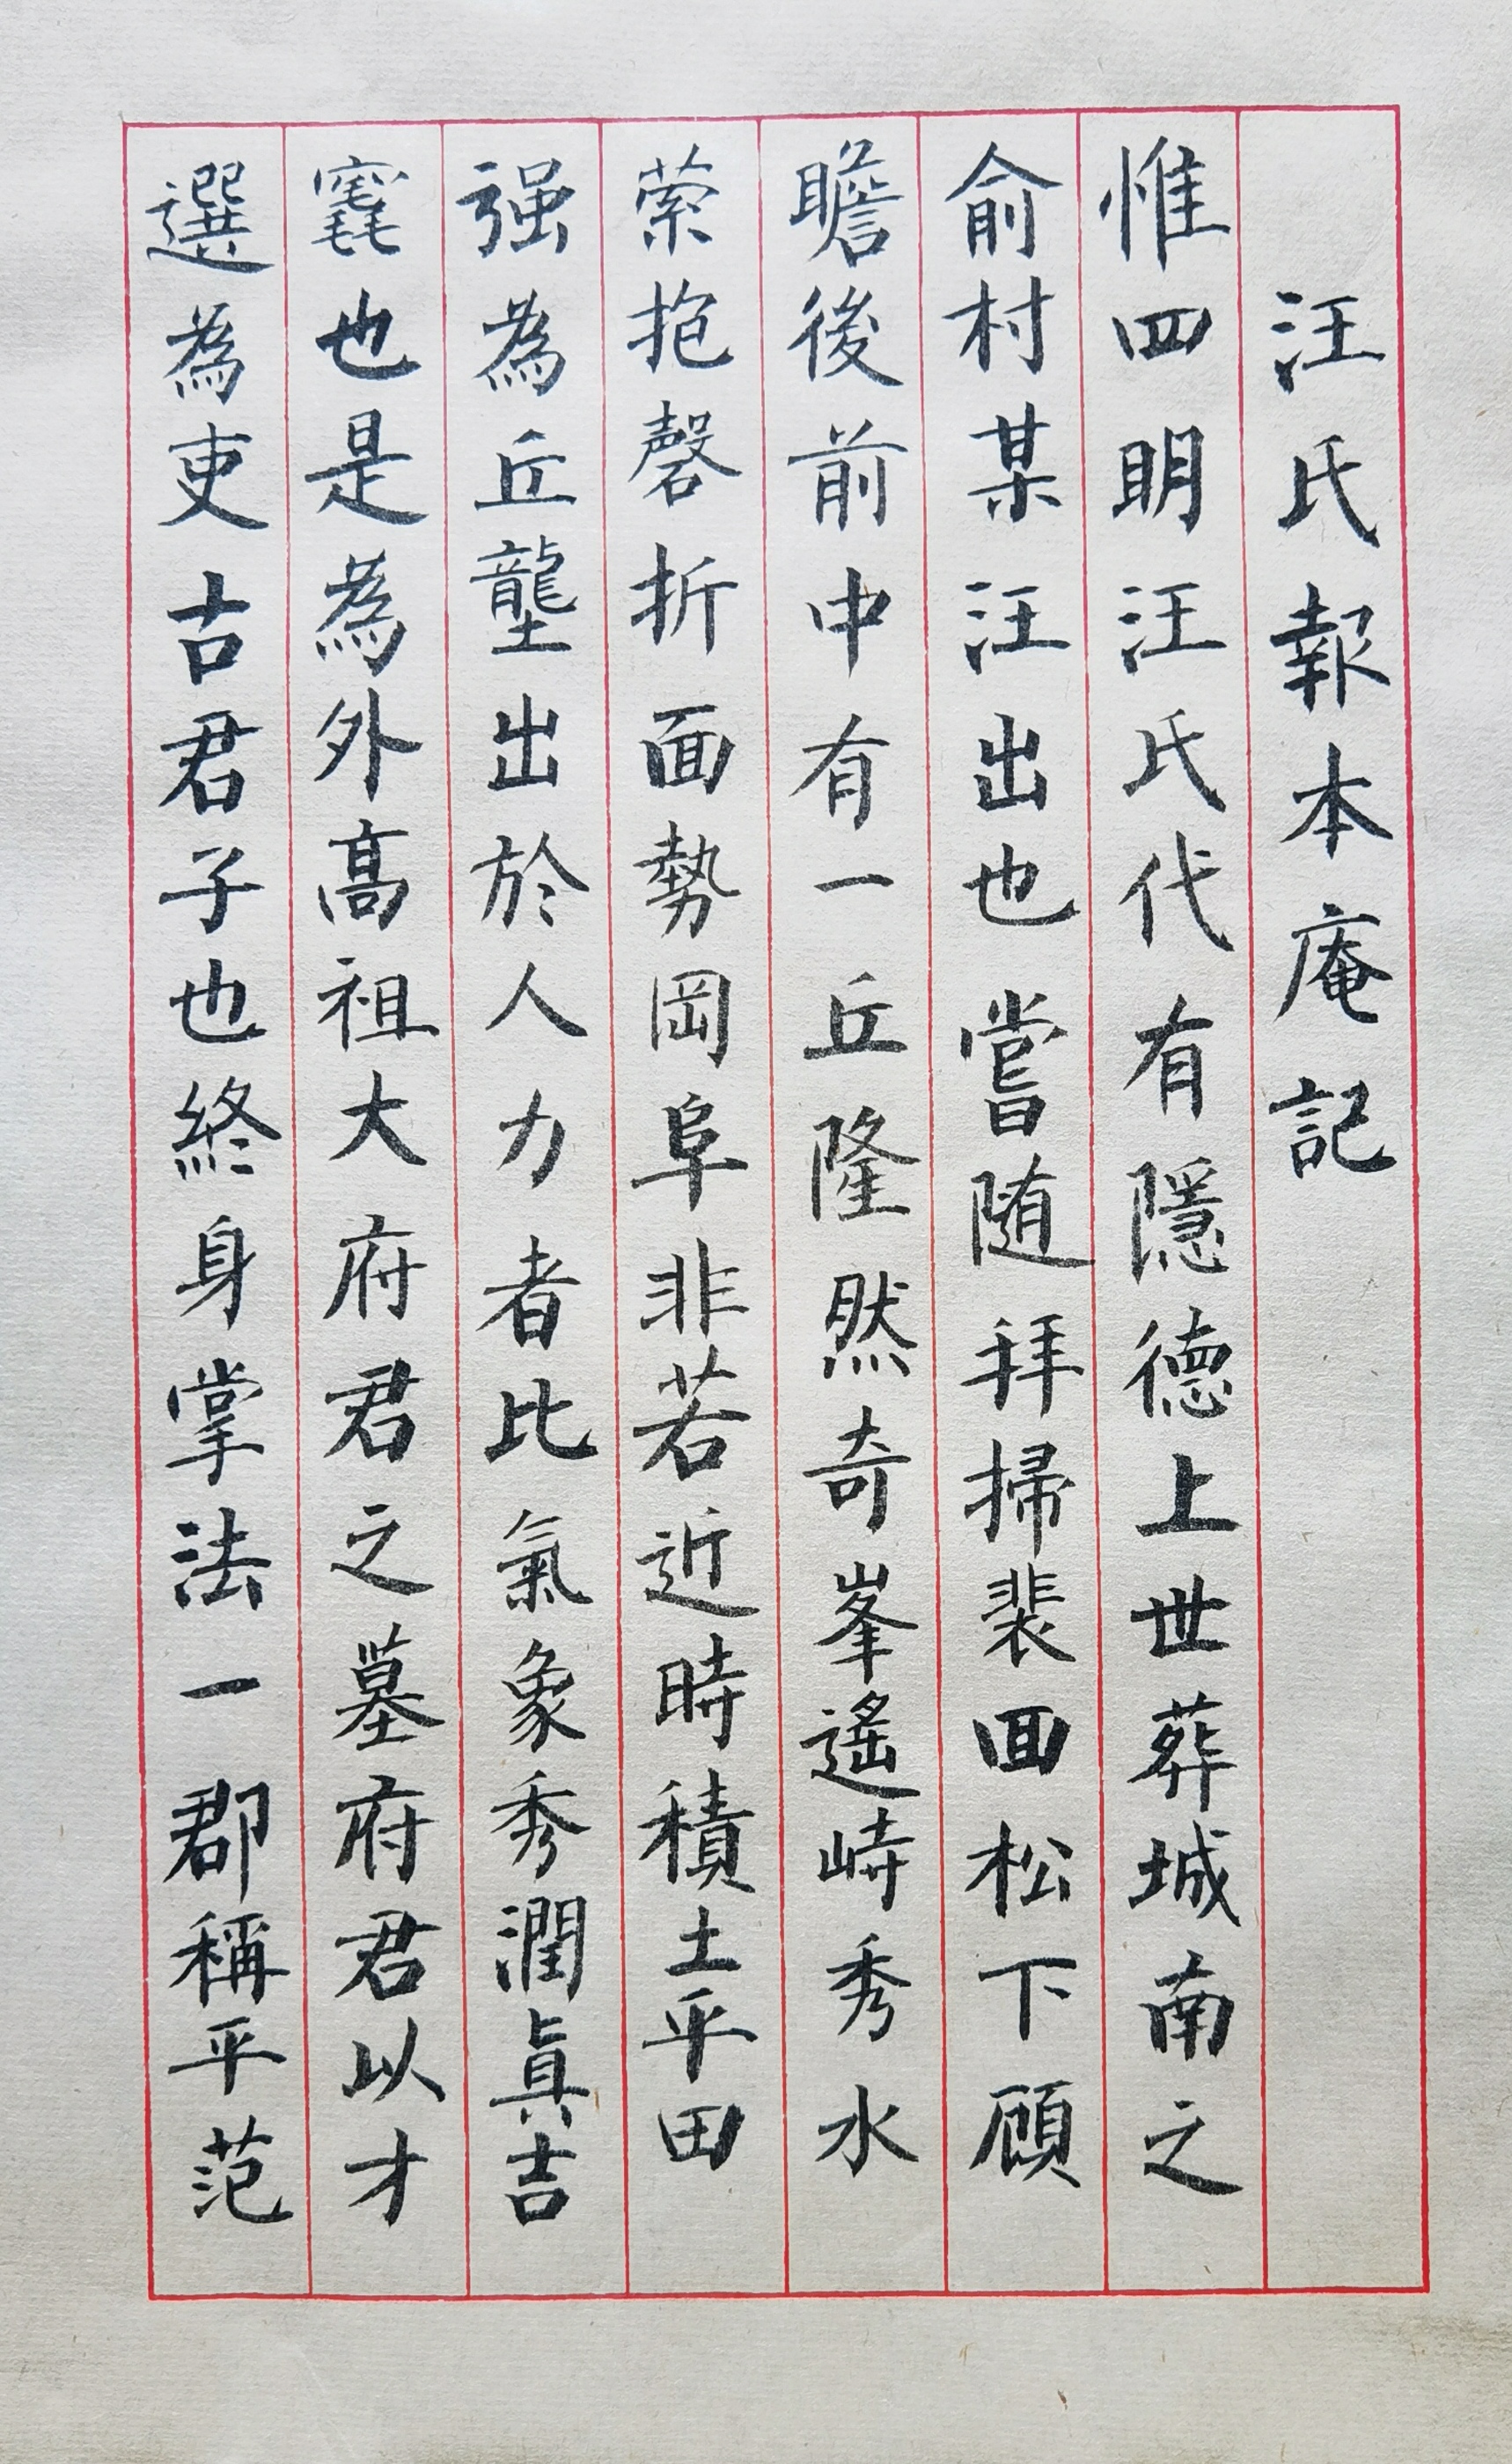 汪氏報本庵記
惟四明汪氏代有隱德上世葬城南之
俞村某汪出也嘗随拜掃裴回松下顧
瞻後前中有一丘隆然奇峯遙峙秀水
萦抱磬折面勢岡阜非若近時積土平田
强為丘壟出於人力者比氣象秀潤眞吉
竁也是為外髙祖大府君之墓府君以才
選為吏古君子也終身掌法一郡稱平范